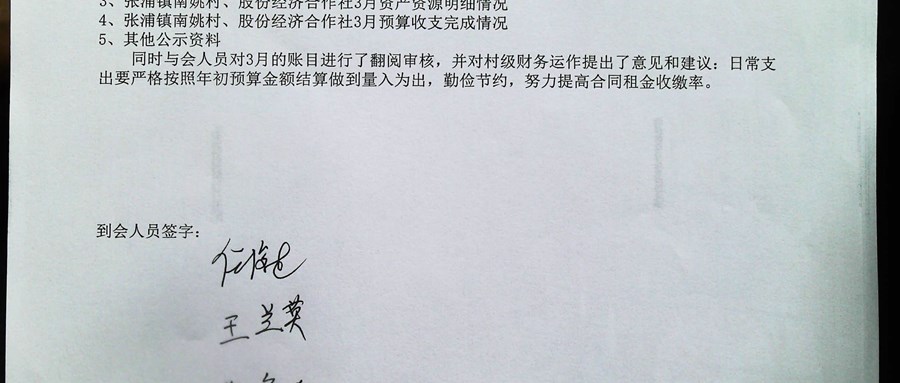 3、张浦镇南姚村、股份经济合作社3月资产资源明细情况
4、张浦镇南姚村、股份经济合作社3月预算收支完成情况
5、其他公示资料
同时与会人员对3月的账目进行了翻阅审核，并对村级财务运作提出了意见和建议：日常支
出要严格按照年初预算金额结算做到量入为出，勤俭节约，努力提高合同租金收缴率。
到会人员签字：
王兰英